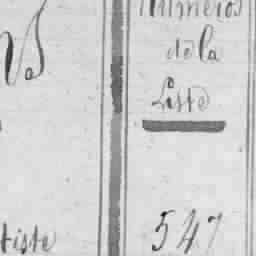 Numéros
de la
Liste
tiste
547